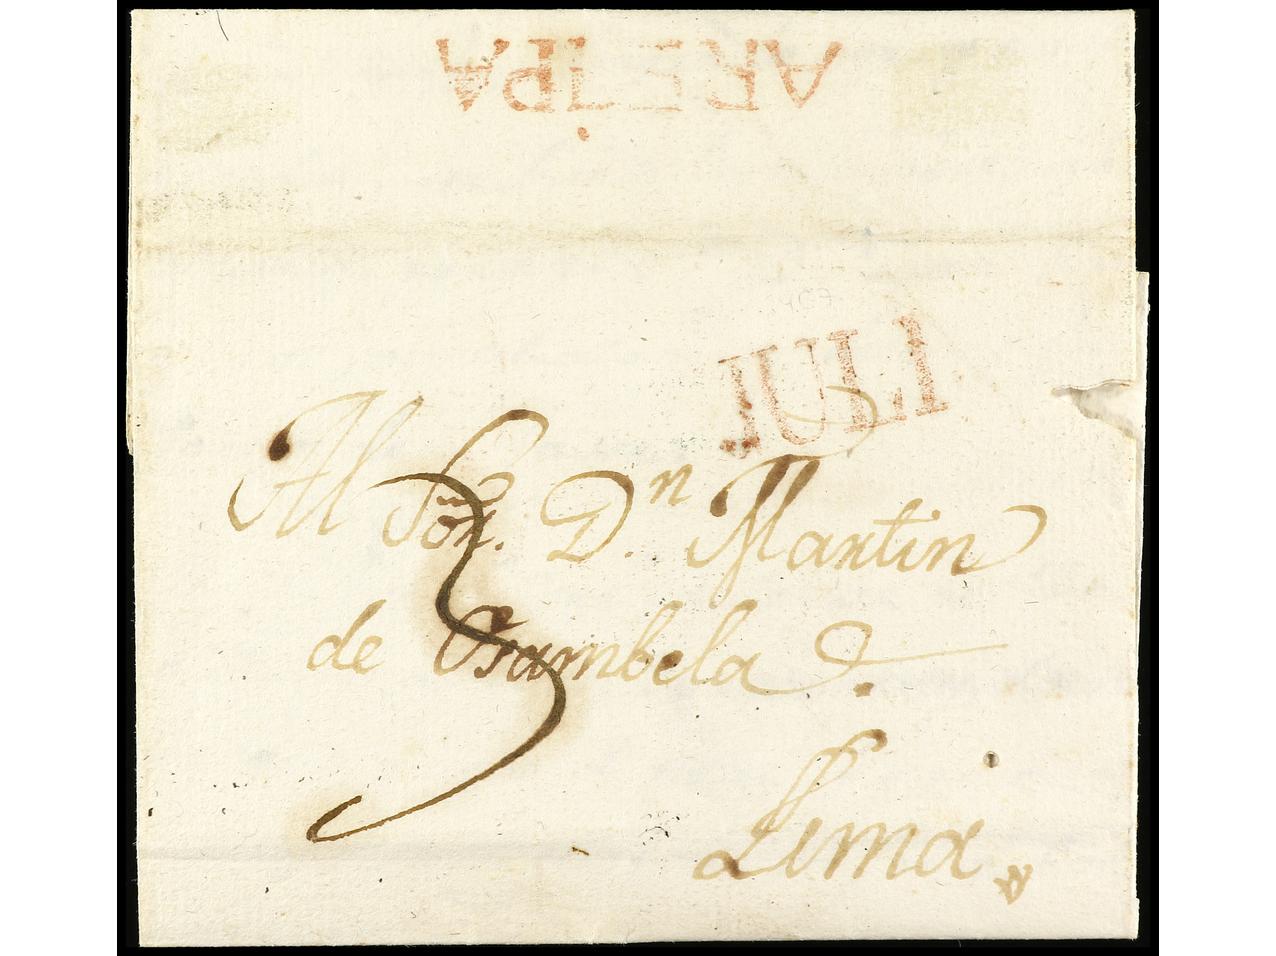 AREIPA
JULI
Al Sor. Dn. Martin
de Osambela.
Lima
3